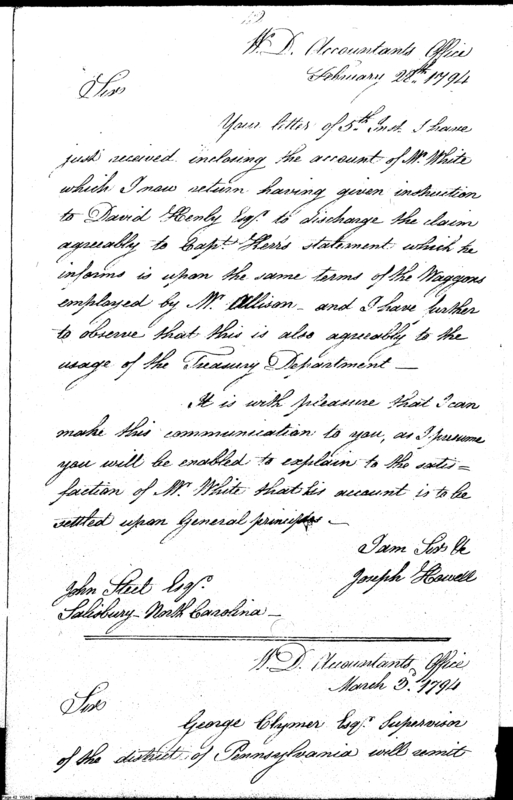 W. D. Accountants Office
February 28th 1794
Sir
Your letter of 5th Inst. I have
just received inclosing the account of Mr. White
which I now return having given instruction
to David Henly Esqr. to discharge the claim
agreeably to Capt. Kerr's statement which he
informs is upon the same terms of the Waggons
employed by Mr. Allison – and I have further
to observe that this is also agreeably to the
usage of the Treasury Department –
It is with pleasure that I can
make this communication to you, as I presume
you will be enabled to explain to the satis=
faction of Mr. White that his account is to be
settled upon General principles –
I am Sir &c
Joseph Howell
John Steel Esqr.
Salisbury – North Carolina –
W. D. Accountants Office
March 3d. 1794
Sir
George Clymer Esqr. Supervisor
of the district of Pennsylvania will remit